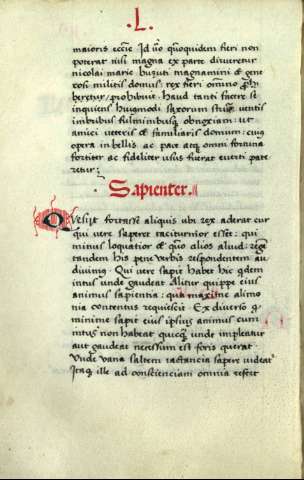 .L.
maioris eccīe Id v̄o quoquidem fieri non
poterat nisi magna ex parte dirueretur
nicolai marie buzuti magnamini & gene
rosi militis domus: rex fieri omnino prohi
beretur, prohibuit. haud tanti facere se
inquiens huiusmodi saxorum struem ventis
imbribus fulminibusque obnoxiam: ut
amici veteris & familiaris domum: cuius
opera in bellis ac pace atque omni fortuna
fortiter ac fideliter usus fuerat everti pate
retur:
Sapienter.
Quesijt fortasse aliquis ubi rex aderat cur
qui vere saperet taciturnior esset: qui
minus loquatior & quo alios aliud: regem
tandem his pene verbis respondentem au
divimus. Qui vere sapit habet hic quidem
intus unde gaudeat Alitur quippe eius
animus sapientia: qua maxime alimo
nia contentus requiescit. Ex diverso qui
minime sapit eius ipsius animus cum
intus non habeat quicquam unde impleatur
aut gaudeat necessum est foris querat.
Unde vana saltem iactancia sapere videatur
Itaque ille ad conscienciam omnia refert